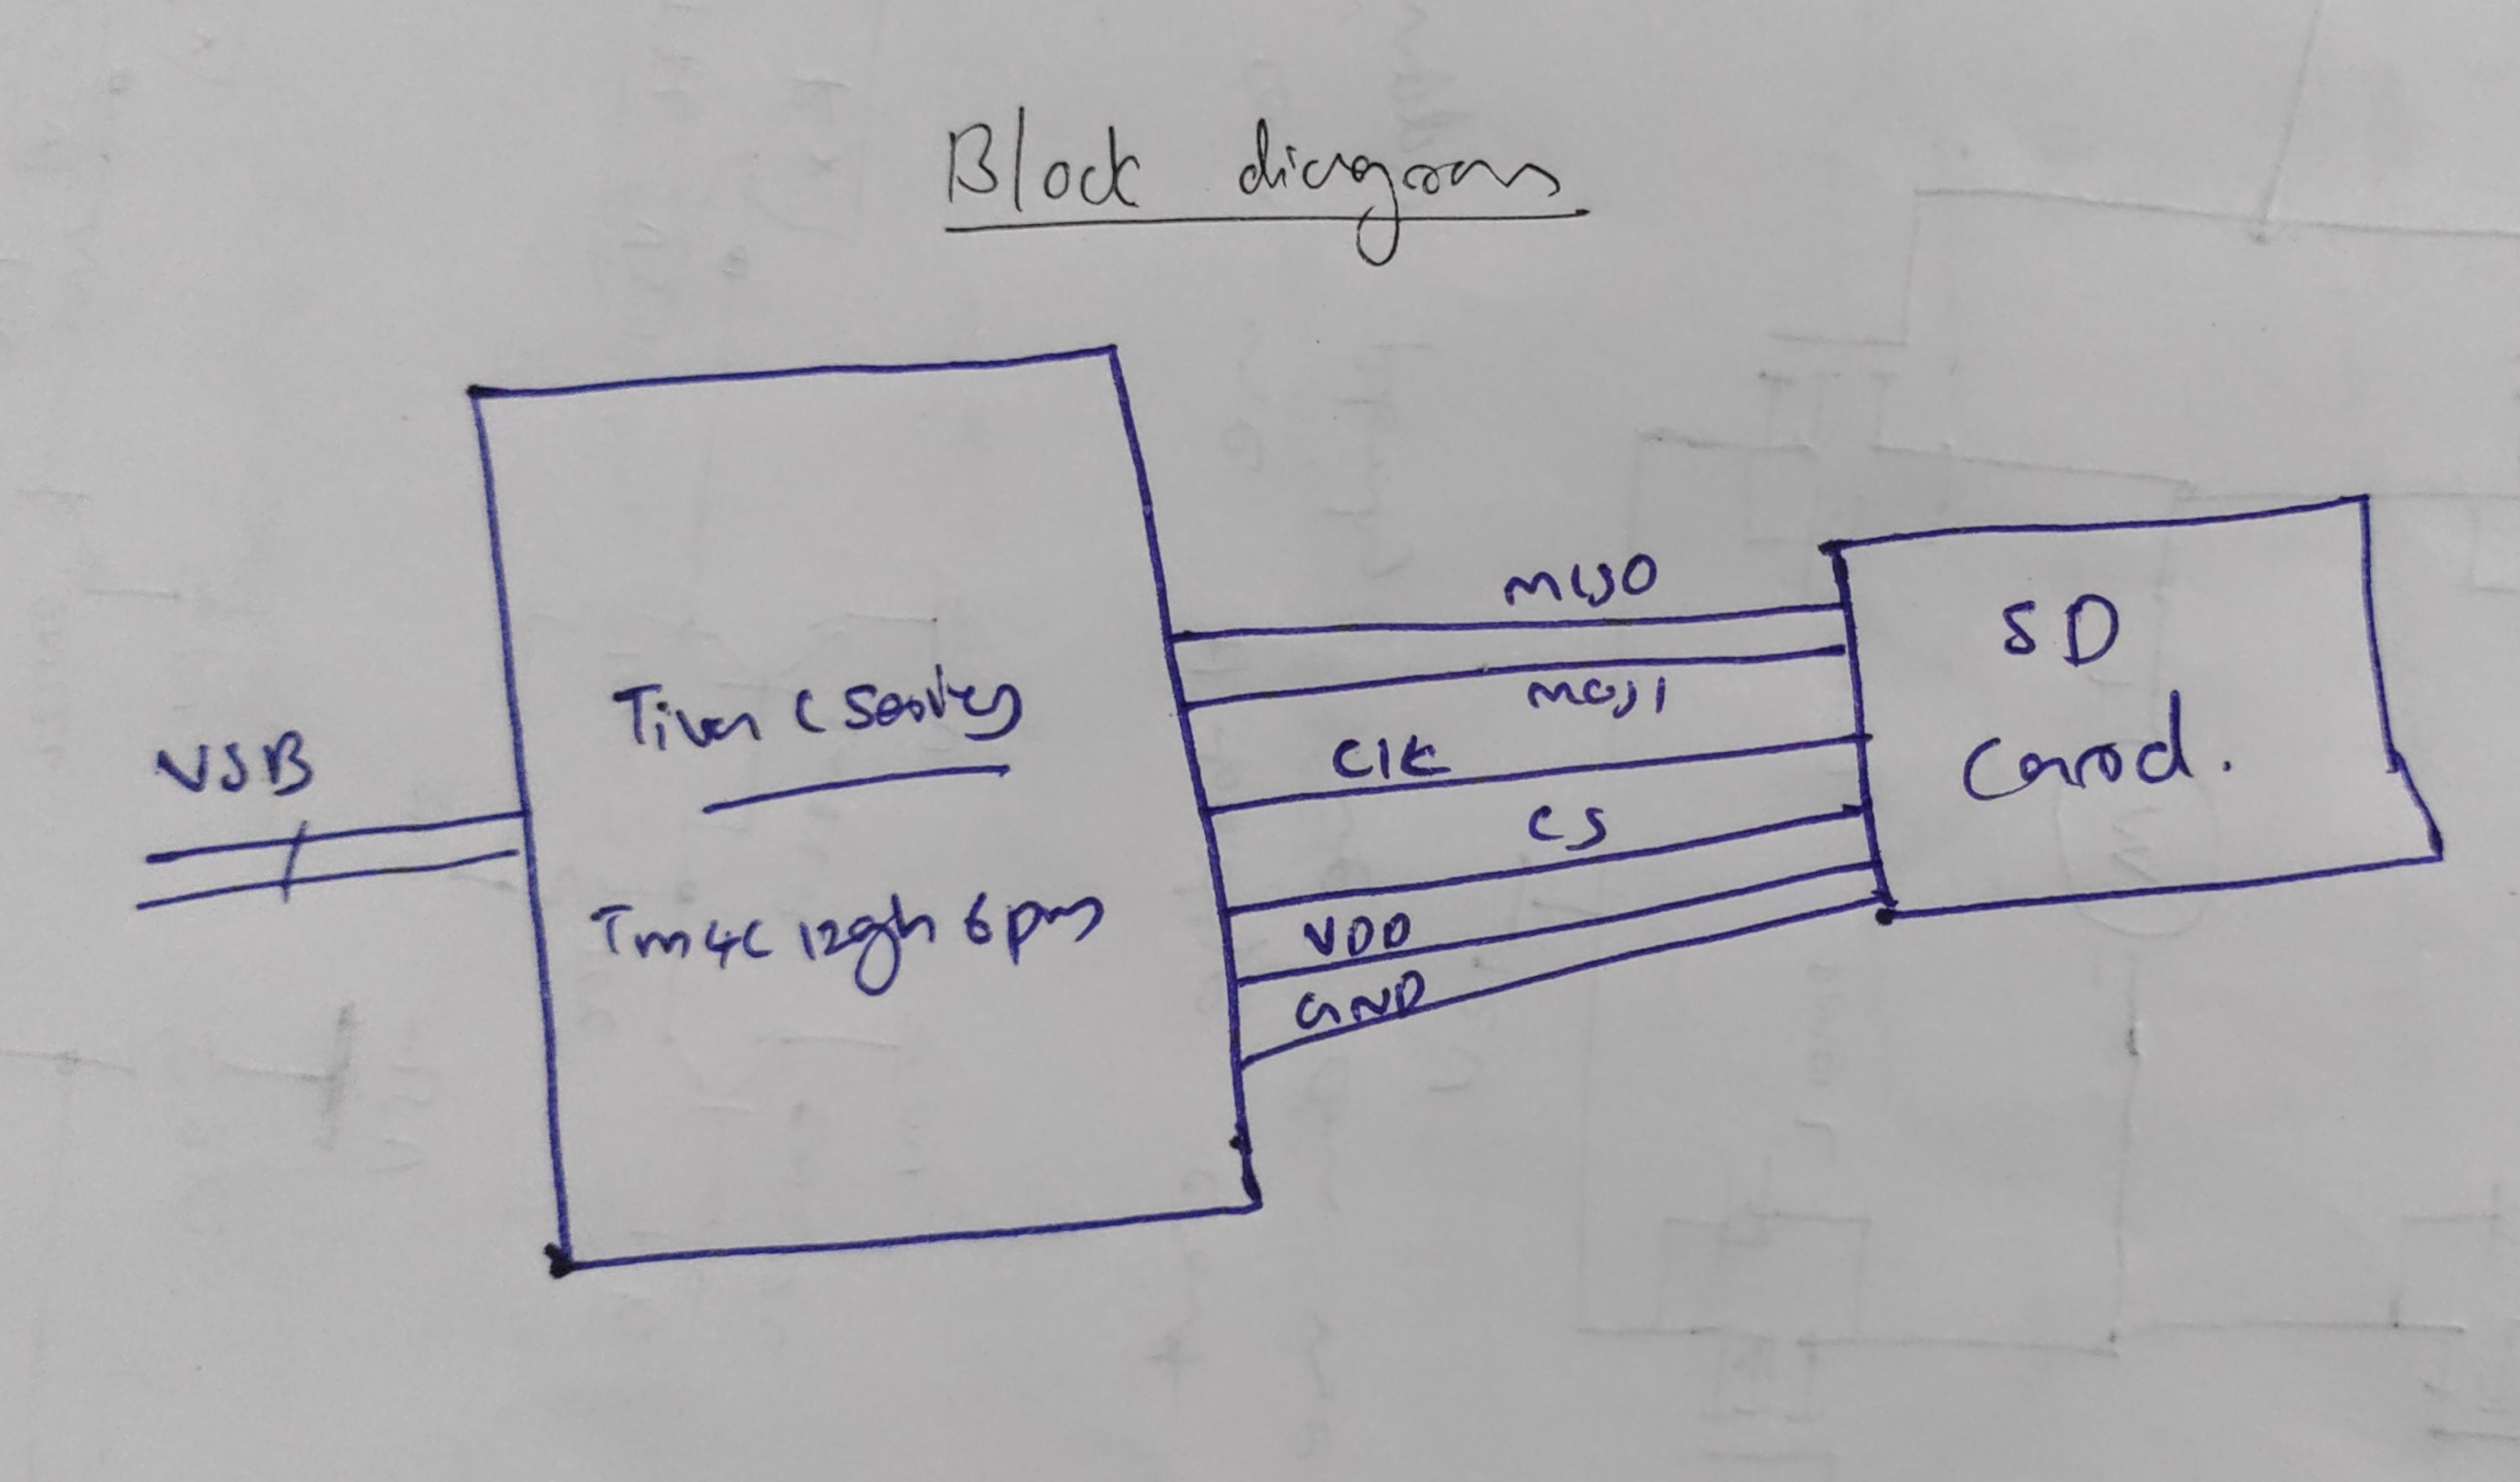 Block diagram
USB
Tiva C Series
Tm4C 129h 6pm
MISO
MOSI
CLK
CS
VDD
GND
SD
Card.